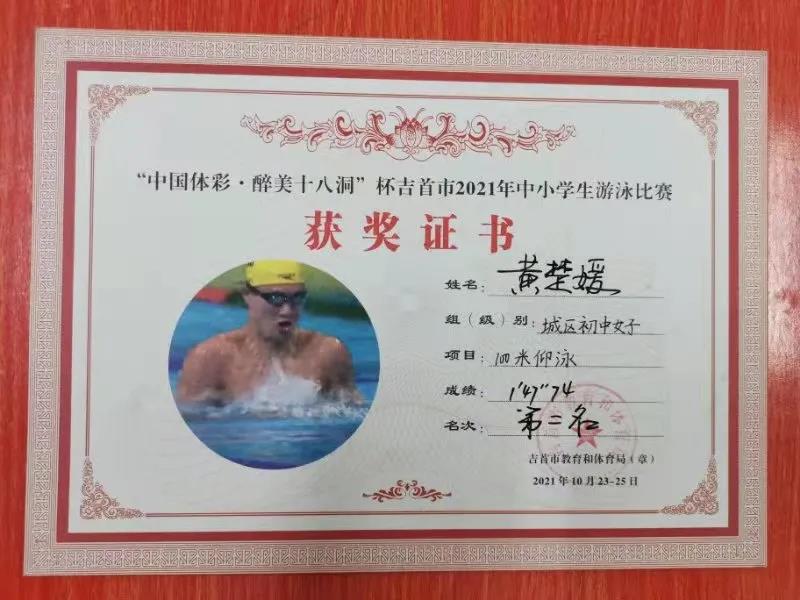 “中国体彩·醉美十八洞”杯吉首市2021年中小学生游泳比赛
获奖证书
姓名：黄楚媛
组（级）别：城区初中女子
项目：100米仰泳
成绩：1′47″74
名次：第二名
吉首市教育和体育局（章）
2021年10月23-25日